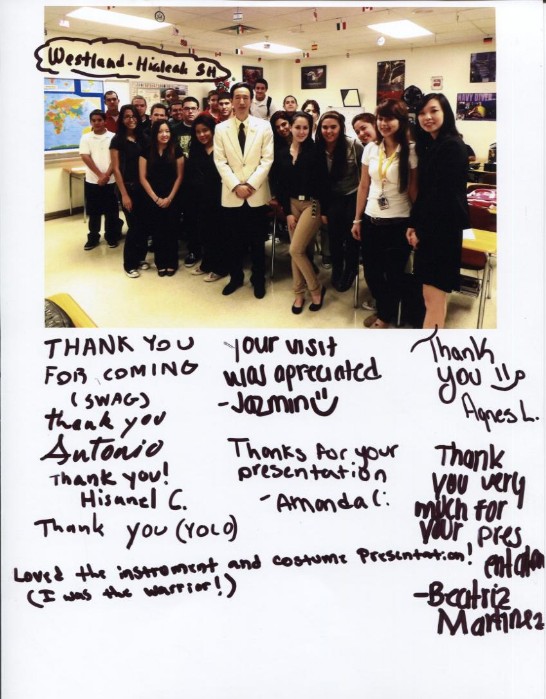 Westland-Hialeah SH
NAVY DIVER
THANK YOU
FOR COMING
(SWAG)
thank you
Antonio
Thank you!
Hisanel C.
Thank you (YOLO)
your visit
was apreciated
-Jazmin
Thanks for your
presentation
-Amanda C:
Thank
you
Agnes L.
Thank
you very
much for
your pres
entation
-Beatriz
Martinez
Loved the instrument and costume Presentation!
(I was the warrior!)